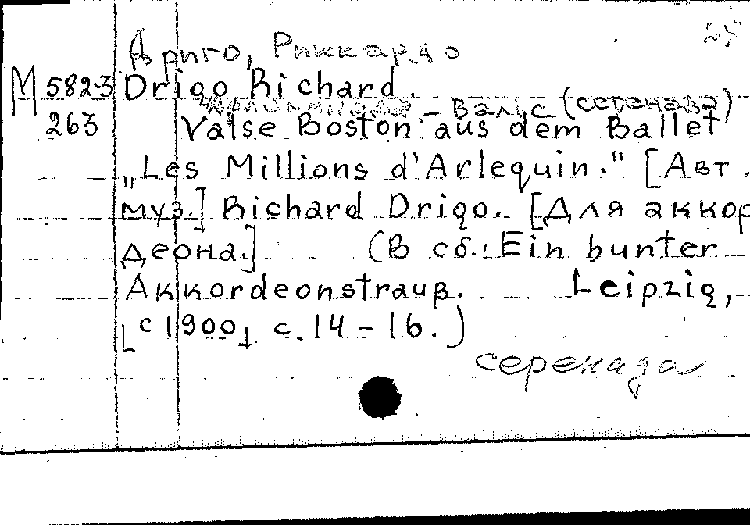 Дриго, Риккардо 25
М 5823 Drigo Richard.
263 - вальс (серенада)
Valse Boston aus dem Ballet
„Les Millions d'Arlequin." [Авт.
муз.] Richard Drigo. [Для аккор
деона.] (В сб.: Ein bunter
Akkordeonstrauß. Leipzig,
[c 1900] с. 14-16.)
серенада